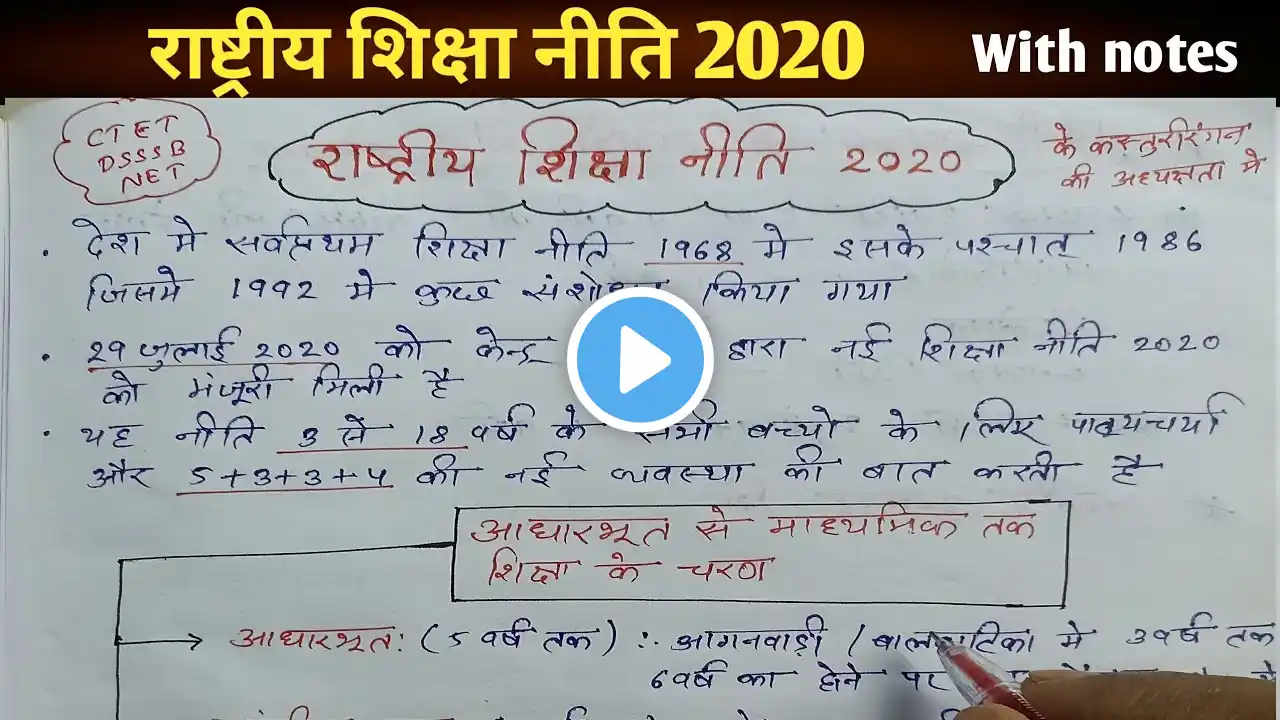 राष्ट्रीय शिक्षा नीति 2020
With notes
CTET
DSSSB
NET
राष्ट्रीय शिक्षा नीति 2020
के कस्तुरीरंगन
की अध्यक्षता मे
• देश मे सर्वप्रथम शिक्षा नीति 1968 मे इसके पश्चात् 1986
जिसमे 1992 मे कुछ किया गया
• 29 जुलाई 2020 को केन्द्र द्वारा नई शिक्षा नीति 2020
को मंजूरी मिली है
• यह नीति 3 से 18 वर्ष के सभी बच्चो के लिए पाठ्यचर्या
और 5+3+3+4 की नई व्यवस्था की बात करती है
आधारभूत से माध्यमिक तक
शिक्षा के चरण
आधारभूत: (5 वर्ष तक) ∴ आगनवाड़ी / मे 3 वर्ष तक
6 वर्ष का होने पर